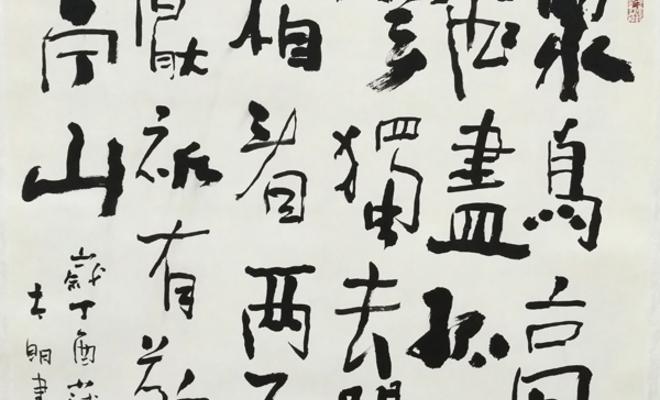 眾鳥高
飛盡孤
云獨去
相看两不
厭祇有敬
亭山
歲丁酉
明書